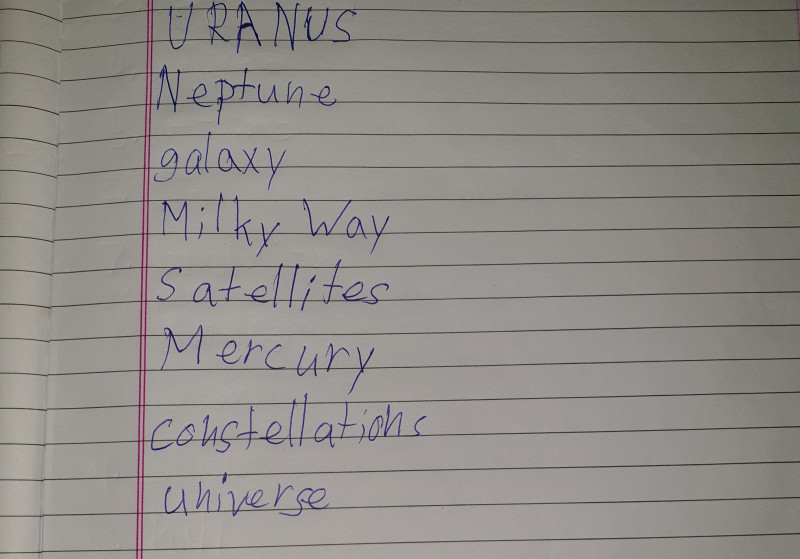 URANUS
Neptune
galaxy
Milky Way
Satellites
Mercury
constellations
universe